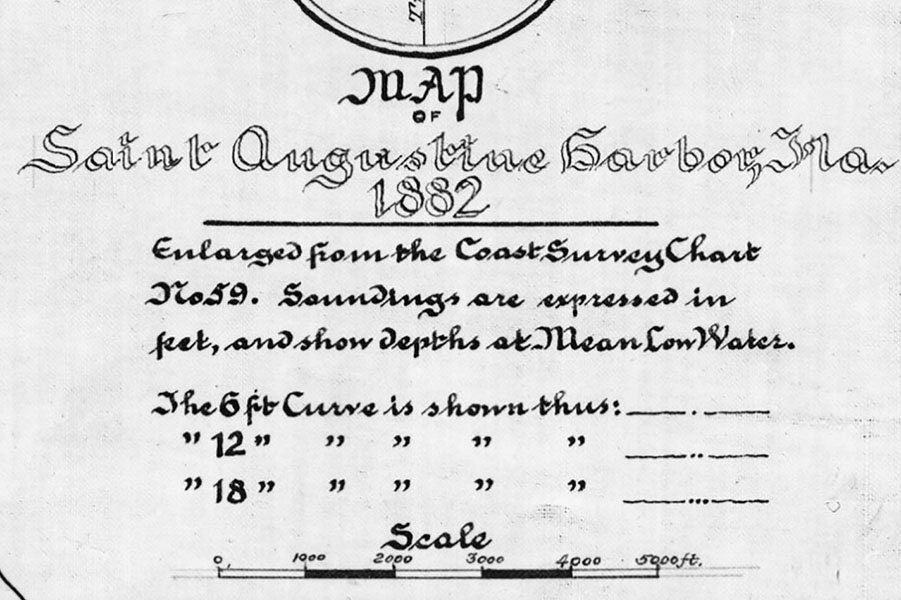 MAP
OF
Saint Augustine Harbor, Fla.
1882
Enlarged from the Coast Survey Chart
No 59. Soundings are expressed in
feet, and show depths at Mean Low Water.
The 6 ft Curve is shown thus:
" 12 " " " " "
" 18 " " " " "
Scale
0 1000 2000 3000 4000 5000 ft.